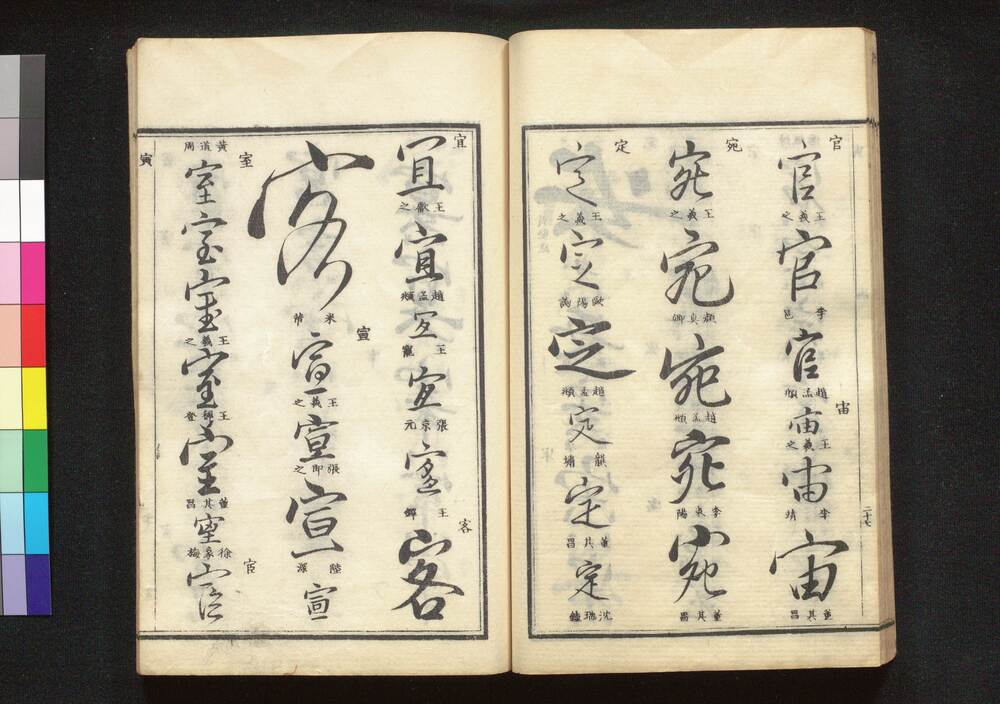 官
官
王羲之
官
李邕
官
趙孟頫
宙
宙
王羲之
宙
李靖
宙
董其昌
二十七
宛
宛
王羲之
宛
顏真卿
宛
趙孟頫
宛
李東陽
宛
董其昌
定
定
王羲之
定
歐陽詢
定
趙孟頫
定
定
董其昌
定
宜
宜
王獻之
宜
趙孟頫
宜
王寵
宜
張京元
宜
王鐸
客
客
客
米芾
宣
宣
王羲之
宣
張即之
宣
陸深
宣
室
黃道周
室
室
室
王羲之
室
王穉登
室
董其昌
室
徐象梅
宦
宦
寅